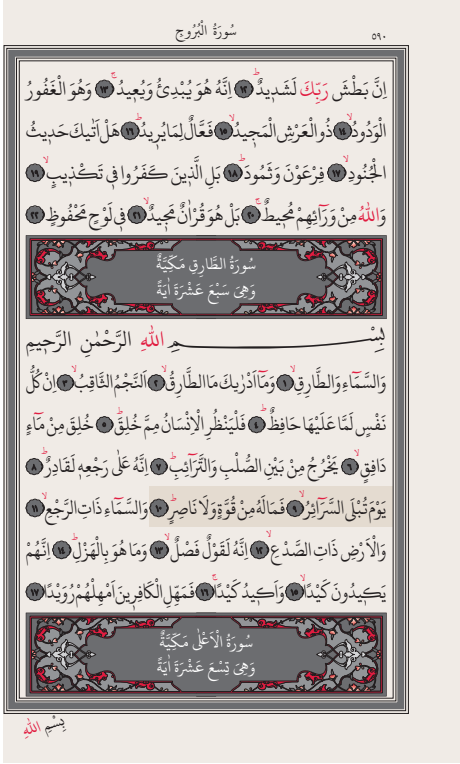 سُورَةُ الْبُرُوجِ ٥٩٠
اِنَّ بَطْشَ رَبِّكَ لَشَدِيدٌۜ ﴿١٢﴾ اِنَّهُ هُوَ يُبْدِئُ وَيُعِيدُۚ ﴿١٣﴾ وَهُوَ الْغَفُورُ
الْوَدُودُۙ ﴿١٤﴾ ذُوالْعَرْشِ الْمَجِيدُۙ ﴿١٥﴾ فَعَّالٌ لِمَا يُرِيدُۜ ﴿١٦﴾ هَلْ اَتٰيكَ حَدِيثُ
الْجُنُودِۙ ﴿١٧﴾ فِرْعَوْنَ وَثَمُودَۜ ﴿١٨﴾ بَلِ الَّذِينَ كَفَرُوا فِي تَكْذِيبٍۙ ﴿١٩﴾
وَاللّٰهُ مِنْ وَرَآئِهِمْ مُحِيطٌۚ ﴿٢٠﴾ بَلْ هُوَ قُرْاٰنٌ مَجِيدٌۙ ﴿٢١﴾ فِي لَوْحٍ مَحْفُوظٍ ﴿٢٢﴾
سُورَةُ الطَّارِقِ مَكِّيَّةٌ
وَهِيَ سَبْعَ عَشْرَةَ اٰيَةً
بِسْمِ اللّٰهِ الرَّحْمٰنِ الرَّحِيمِ
وَالسَّمَآءِ وَالطَّارِقِۙ ﴿١﴾ وَمَآ اَدْرٰيكَ مَا الطَّارِقُۙ ﴿٢﴾ اَلنَّجْمُ الثَّاقِبُۙ ﴿٣﴾ اِنْ كُلُّ
نَفْسٍ لَمَّا عَلَيْهَا حَافِظٌۜ ﴿٤﴾ فَلْيَنْظُرِ الْاِنْسَانُ مِمَّ خُلِقَۜ ﴿٥﴾ خُلِقَ مِنْ مَآءٍ
دَافِقٍۙ ﴿٦﴾ يَخْرُجُ مِنْ بَيْنِ الصُّلْبِ وَالتَّرَآئِبِۜ ﴿٧﴾ اِنَّهُ عَلٰى رَجْعِهِ لَقَادِرٌۜ ﴿٨﴾
يَوْمَ تُبْلَى السَّرَآئِرُۙ ﴿٩﴾ فَمَا لَهُ مِنْ قُوَّةٍ وَلَا نَاصِرٍۜ ﴿١٠﴾ وَالسَّمَآءِ ذَاتِ الرَّجْعِۙ ﴿١١﴾
وَالْاَرْضِ ذَاتِ الصَّدْعِۙ ﴿١٢﴾ اِنَّهُ لَقَوْلٌ فَصْلٌۙ ﴿١٣﴾ وَمَا هُوَ بِالْهَزْلِۜ ﴿١٤﴾ اِنَّهُمْ
يَكِيدُونَ كَيْدًاۙ ﴿١٥﴾ وَاَكِيدُ كَيْدًاۚ ﴿١٦﴾ فَمَهِّلِ الْكَافِرِينَ اَمْهِلْهُمْ رُوَيْدًا ﴿١٧﴾
سُورَةُ الْاَعْلٰى مَكِّيَّةٌ
وَهِيَ تِسْعَ عَشْرَةَ اٰيَةً
بِسْمِ اللّٰهِ